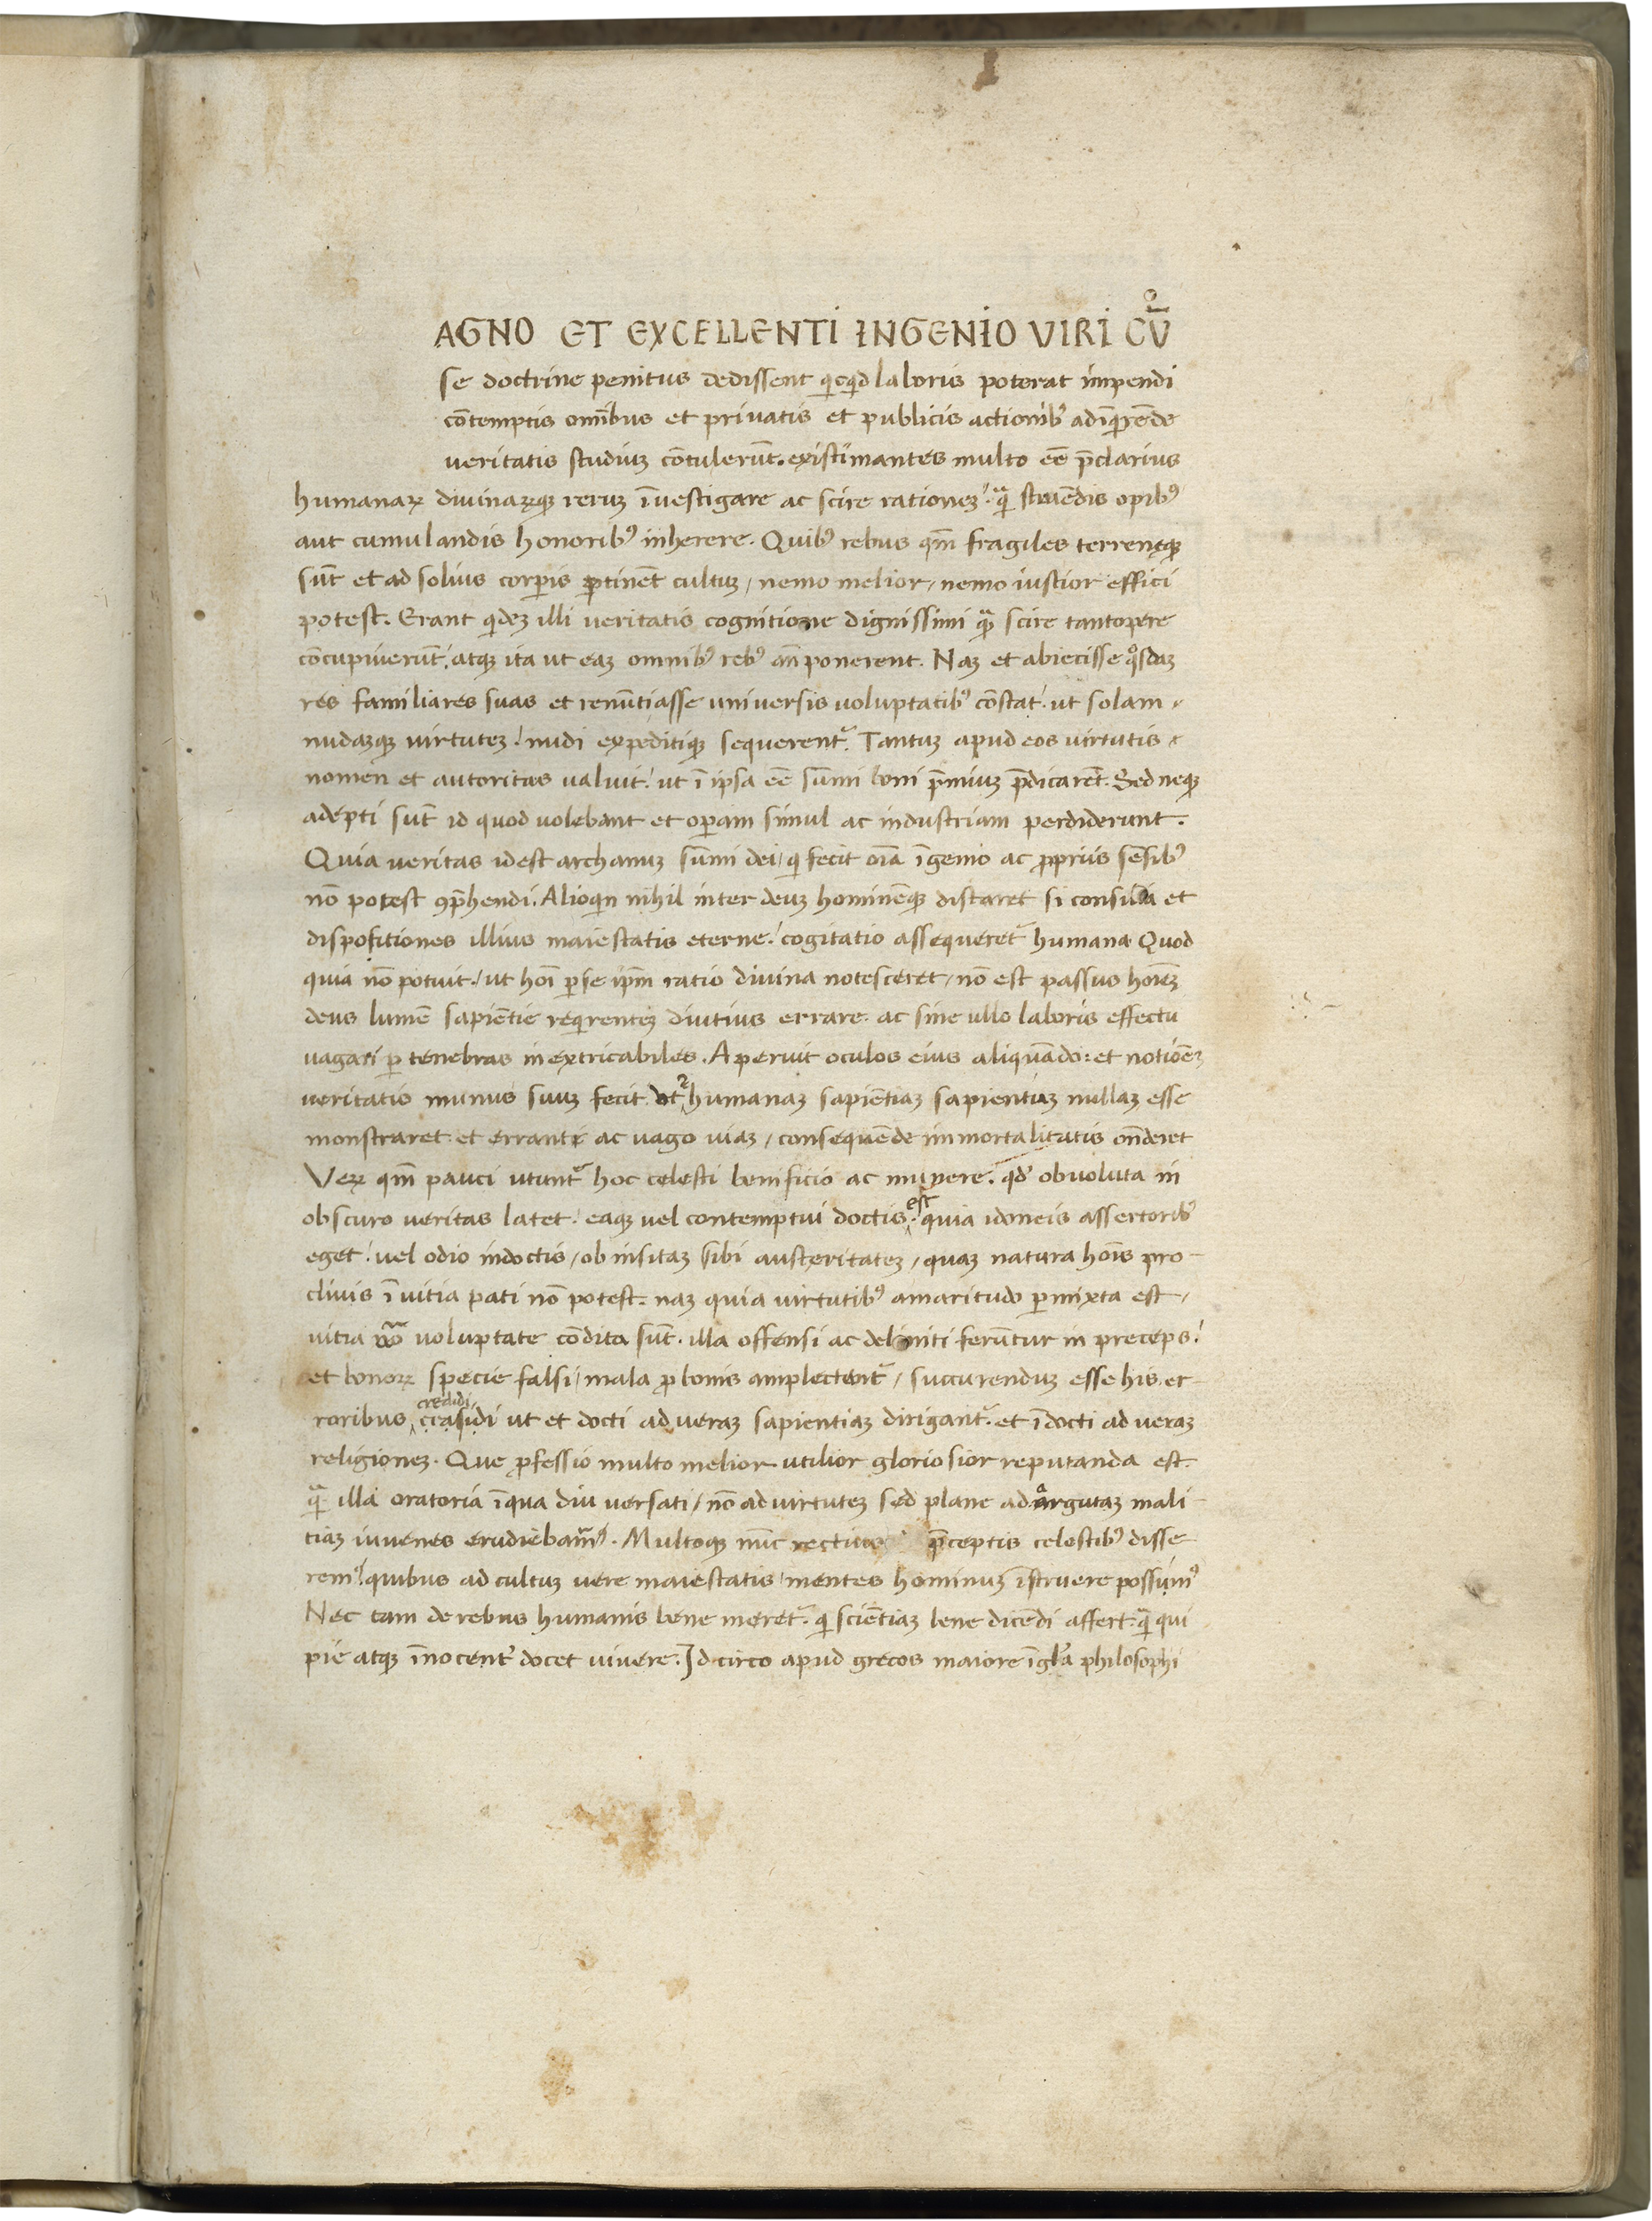 AGNO ET EXCELLENTI INGENIO VIRI CŪ
se doctrine penitus dedissent qicqd laboris poterat impendi
cōtemptis omībus et privatis et publicis actionibꝰ ad īqrēde
veritatis studiuꝫ cōtulerūt. existimantes multo eē p̄clarius
humanaꝝ divinaꝝqꝫ reruꝫ īvestigare ac scire rationeꝫ. qᷓ struēdis opibꝰ
aut cumulandis honoribꝰ inherere. Quibꝰ rebus qm̄ fragiles terrenęqꝫ
sūt et ad solius corꝑis ꝑtinēt cultuꝫ / nemo melior / nemo iustior effici
potest. Erant qideꝫ illi veritatis cognitione dignissimi qᷓ scire tantopere
cōcupiverūt / atqꝫ ita ut eaꝫ omnibꝰ rebꝰ an̄ponerent. Naꝫ et abiecisse qͦsdaꝫ
res familiares suas et renūtiasse universis voluptatibꝰ cōstat. ut solam
nudaꝫqꝫ virtuteꝫ / nudi expeditiqꝫ sequerentᷣ. Tantuꝫ apud eos virtutis
nomen et autoritas valuit. ut ī ipsa eē sūmi boni p̄miuꝫ p̄dicarēt. Sed neqꝫ
adepti sūt id quod volebant et oꝑam simul ac industriam perdiderunt.
Quia veritas id est archanuꝫ sūmi dei / qi fecit oīa īgenio ac ꝓpriis sēsibꝰ
nō potest ꝯp̄hendi. Alioqin nihil inter deuꝫ hominēqꝫ distaret si consilia et
dispositiones illius maiestatis eterne / cogitatio assequeretᷣ humana Quod
quia nō potuit / ut hoī ꝑ se ip̄m ratio divina notesceret / nō est passus hoīeꝫ
deus lumē sapiētie reqirenteꝫ diutius errare. ac sine ullo laboris effectu
vagari ꝑ tenebras inextricabiles. Aperuit oculos eius aliquādo: et notiōeꝫ
veritatis munus suuꝫ fecit. ut humanaꝫ sapiētiaꝫ sapientiuꝫ nullaꝫ esse
monstraret. et erranti ac vago viaꝫ / consequēde immortalitatis on̄deret
Veꝝ qm̄ pauci utuntᷣ hoc celesti benificio ac munere. qd obvoluta in
obscuro veritas latet / eaqꝫ vel contemptui doctis est quia idoneis assertoribꝰ
eget / vel odio indoctis / ob insitaꝫ sibi austeritateꝫ / quaꝫ natura hoīs pro-
clivis ī vitia pati nō potest. naꝫ quia virtutibꝰ amaritudo ꝑmixta est /
vitia vͦo voluptate cōdita sūt. illa offensi ac deliniti ferūtur in preceps /
et bonoꝝ specie falsi / mala ꝓ bonis amplectentᷣ / succurenduꝫ esse his er-
roribus credidi ut et docti ad veraꝫ sapientiaꝫ dirigantᷣ. et īdocti ad veraꝫ
religioneꝫ. Que ꝓfessio multo melior utilior gloriosior reputanda est.
qᷓ illa oratoria īqua diu versati / nō ad virtuteꝫ sed plane ad argutaꝫ mali-
tiaꝫ iuvenes erudiebamꝰ. Multoqꝫ nūc rectius p̄ceptis celestibꝰ disse
remꝰ / quibus ad cultuꝫ vere maiestatis / mentes hominuꝫ īstruere possumꝰ
Nec tam de rebus humanis bene meretᷣ. qi sciētiaꝫ bene dicēdi affert. qᷓ qui
pie atqꝫ īnocentᷣ docet vivere. Id circo apud grecos maiore īgl̄a philosophi